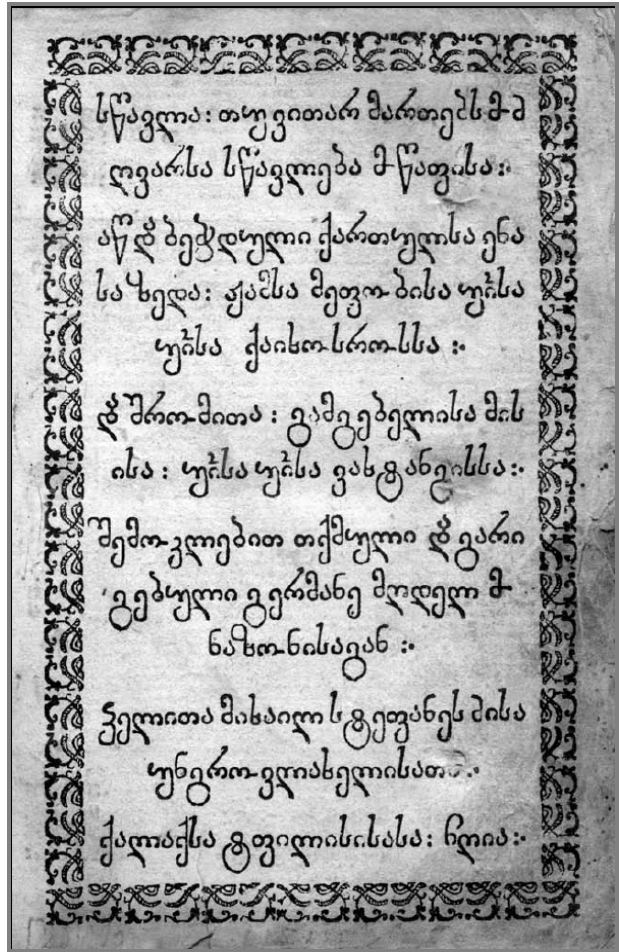 სწავლა: თუ ვითარ მართებს მ~მ
ღვარსა სწავლება მ~წაფისა:·
აწ დ~ ბეჭდული ქართულსა ენა
სა ზედა: ჟამსა მეფობისა უ~ისა
უ~ისა ქაიხოსროსსა :·
დ~ შრომითა: გამგებელისა მის
ისა: უ~ისა უ~ისა ვახტანგისსა:·
შემოკლებით თქმული დ~ გარი
გებული გერმანე მღდელ მ~
ნაზონისაგან :·
ჴელითა მიხაილ სტეფანეს ძისა
უნგროვლიახელისათა:·
ქალაქსა ტფილისისასა: ჩღია:·